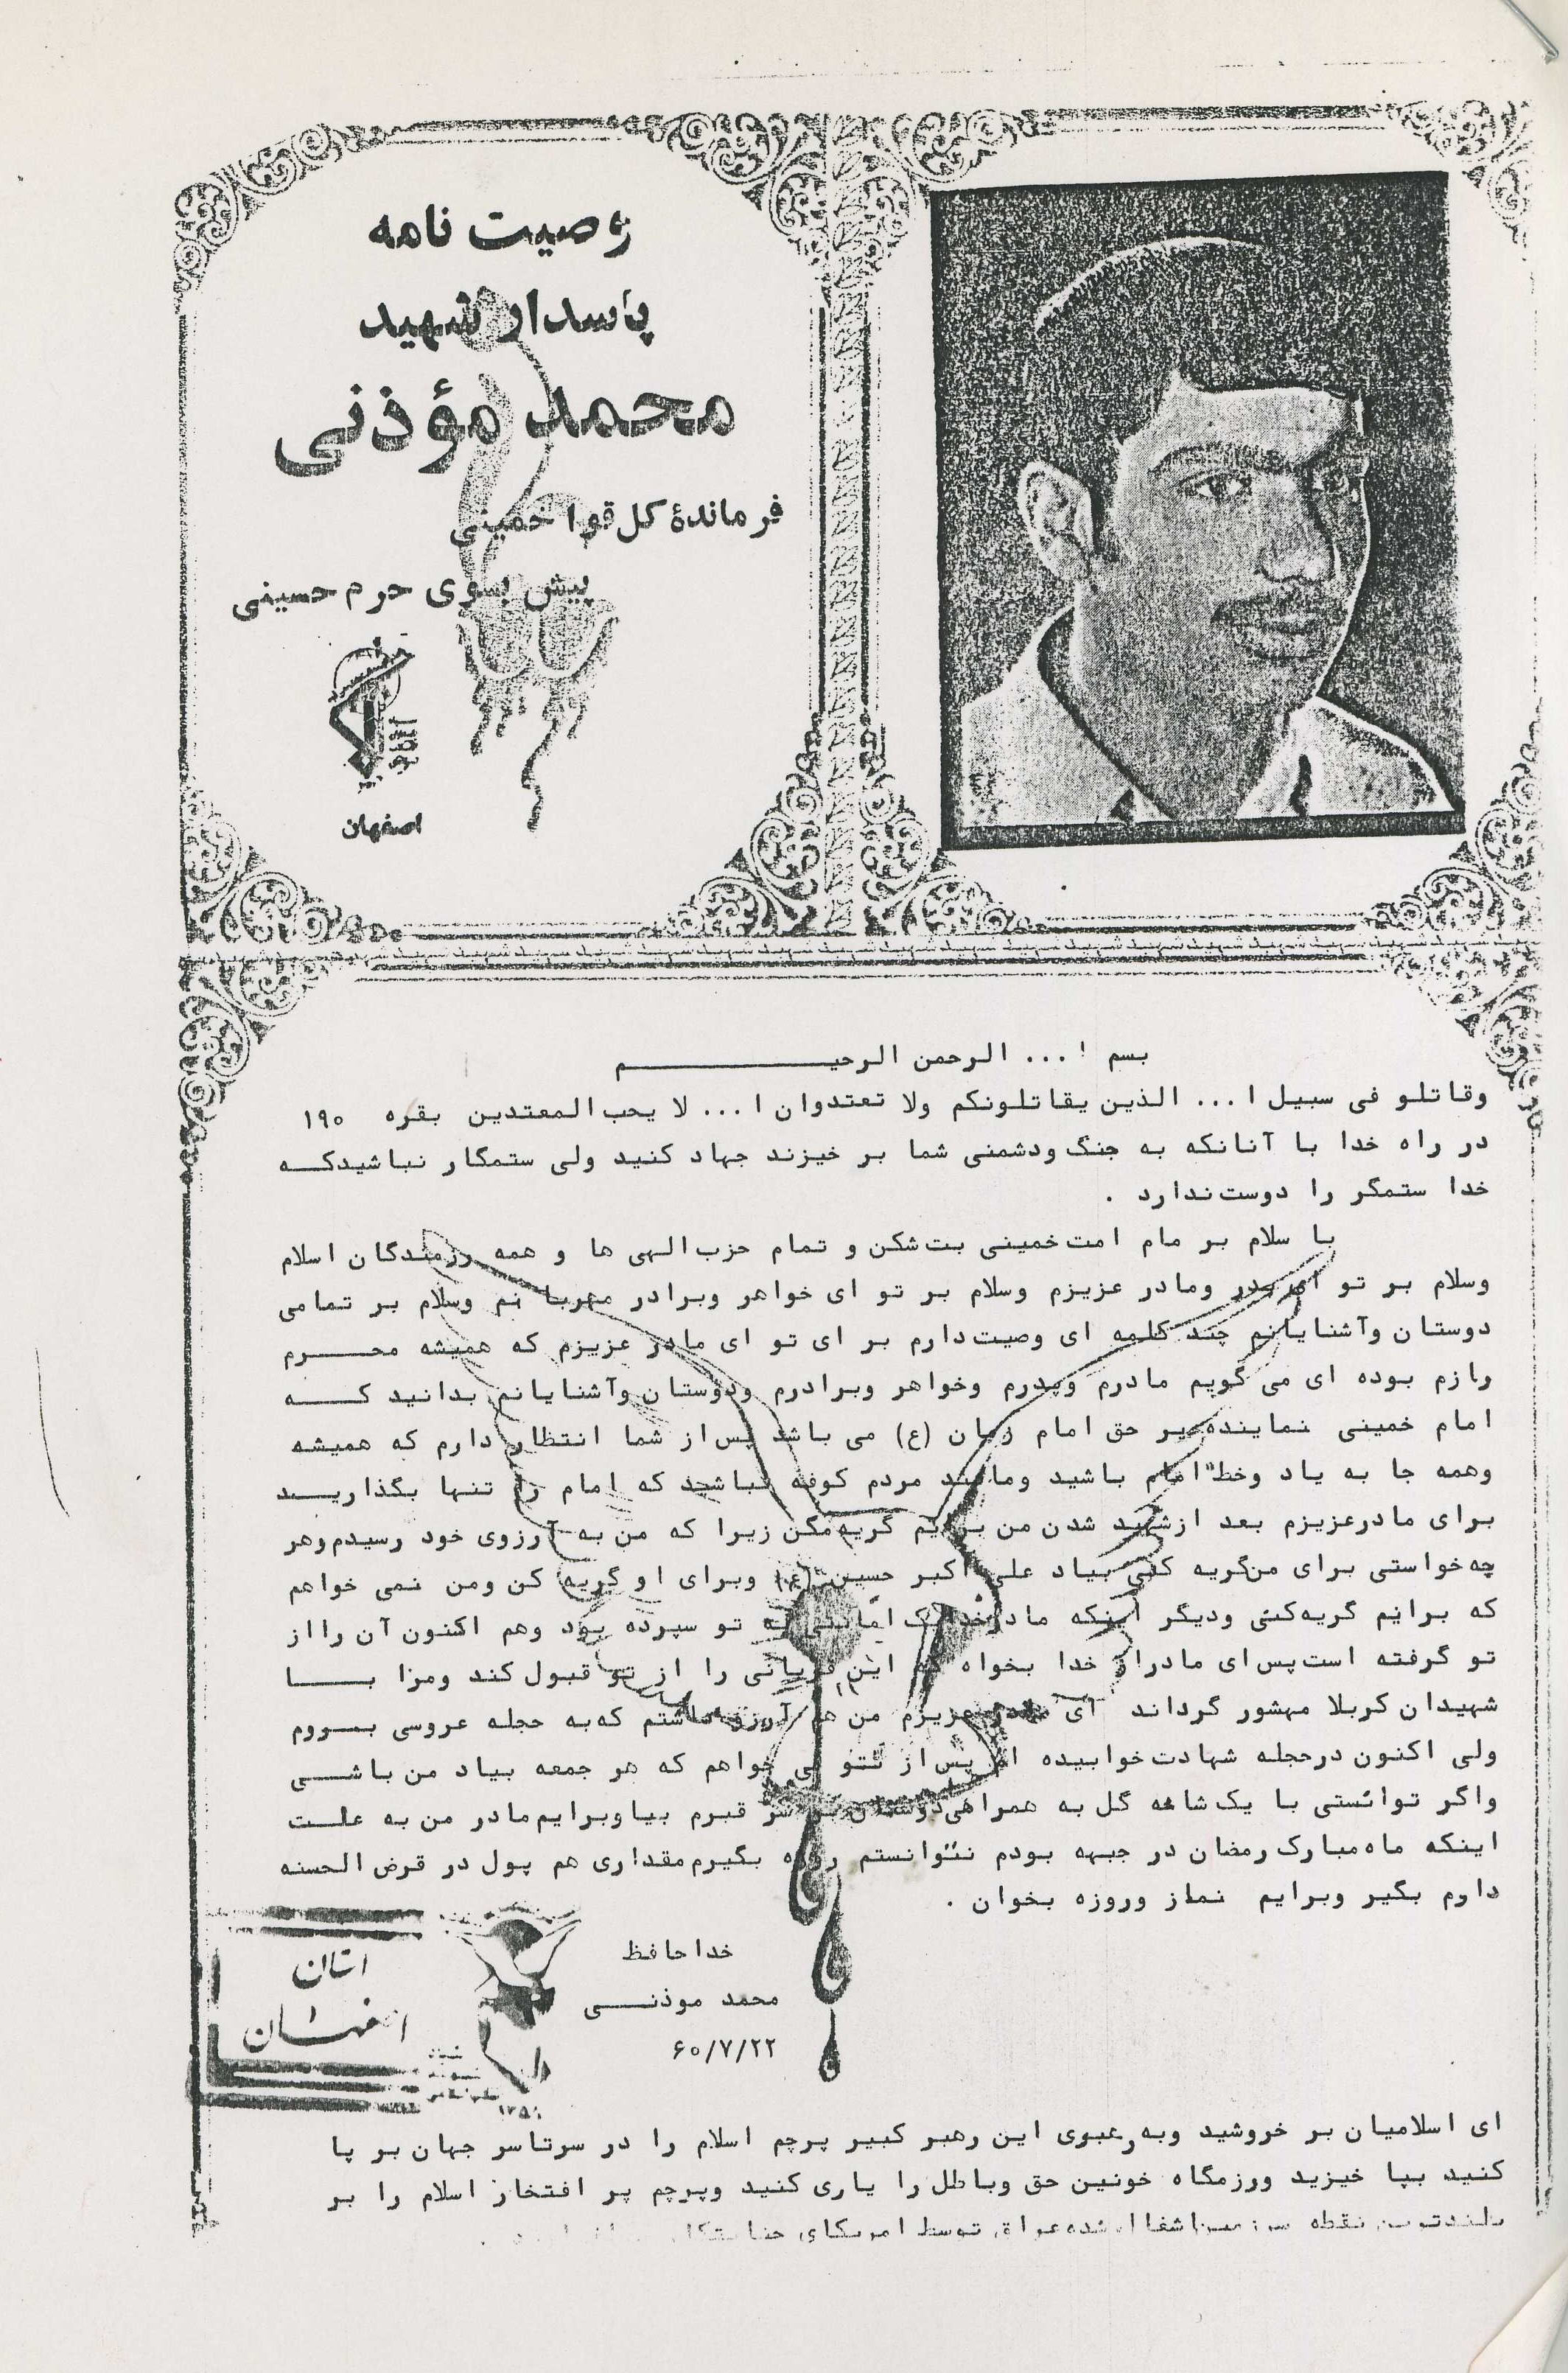 وصیت نامه
پاسدار شهید
محمد مؤذنی
فرماندهٔ کل قوا خمینی
پیش بسوی حرم حسینی
اصفهان
بسم ا... الرحمن الرحیم
وقاتلو فی سبیل ا... الذین یقاتلونکم ولا تعتدوان ا... لا یحب المعتدین بقره ۱۹۰
در راه خدا با آنانکه به جنگ ودشمنی شما بر خیزند جهاد کنید ولی ستمگار نباشیدکه
خدا ستمگر را دوست ندارد .
با سلام بر مام امت خمینی بت شکن و تمام حزب الهی ها و همه رزمندگان اسلام
وسلام بر تو ای پدر ومادر عزیزم وسلام بر تو ای خواهر وبرادر مهربا نم وسلام بر تمامی
دوستان وآشنایانم چند کلمه ای وصیت دارم بر ای تو ای مادر عزیزم که همیشه محرم
رازم بوده ای می گویم مادرم وپدرم وخواهر وبرادرم ودوستان وآشنایانم بدانید که
امام خمینی نماینده بر حق امام زمان (ع) می باشد پس از شما انتظار دارم که همیشه
وهمه جا به یاد وخط امام باشید ومانند مردم کوفه نباشید که امام را تنها بگذارید
برای مادرعزیزم بعد ازشهید شدن من برایم گریه مکن زیرا که من به آرزوی خود رسیدم وهر
چه خواستی برای من گریه کنی بیاد علی اکبر حسین (ع) وبرای او گریه کن ومن نمی خواهم
که برایم گریه کنی ودیگر اینکه مادر خدا یک امانتی به تو سپرده بود وهم اکنون آن را از
تو گرفته است پس ای مادراز خدا بخواه که این قربانی را از تو قبول کند ومرا با
شهیدان کربلا مهشور گرداند ای مادر عزیزم من هم آرزو داشتم که به حجله عروسی بروم
ولی اکنون درحجله شهادت خوابیده ام پس از تتو می خواهم که هر جمعه بیاد من باشی
واگر توانستی با یک شاخه گل به همراهی دوستان بر سر قبرم بیا وبرایم مادر من به علت
اینکه ماه مبارک رمضان در جبهه بودم نتوانستم روزه بگیرم مقداری هم پول در قرض الحسنه
دارم بگیر وبرایم نماز وروزه بخوان .
خداحافظ
محمد موذنی
۶۰/۷/۲۲
استان
اصفهان
ای اسلامیان بر خروشید وبه رعبری این رهبر کبیر پرچم اسلام را در سرتاسر جهان بر پا
کنید بپا خیزید ورزمگاه خونین حق وباطل را یاری کنید وپرچم پر افتخار اسلام را بر
بلندترین نقطه سرزمین اشغال شده عراق توسط امریکای